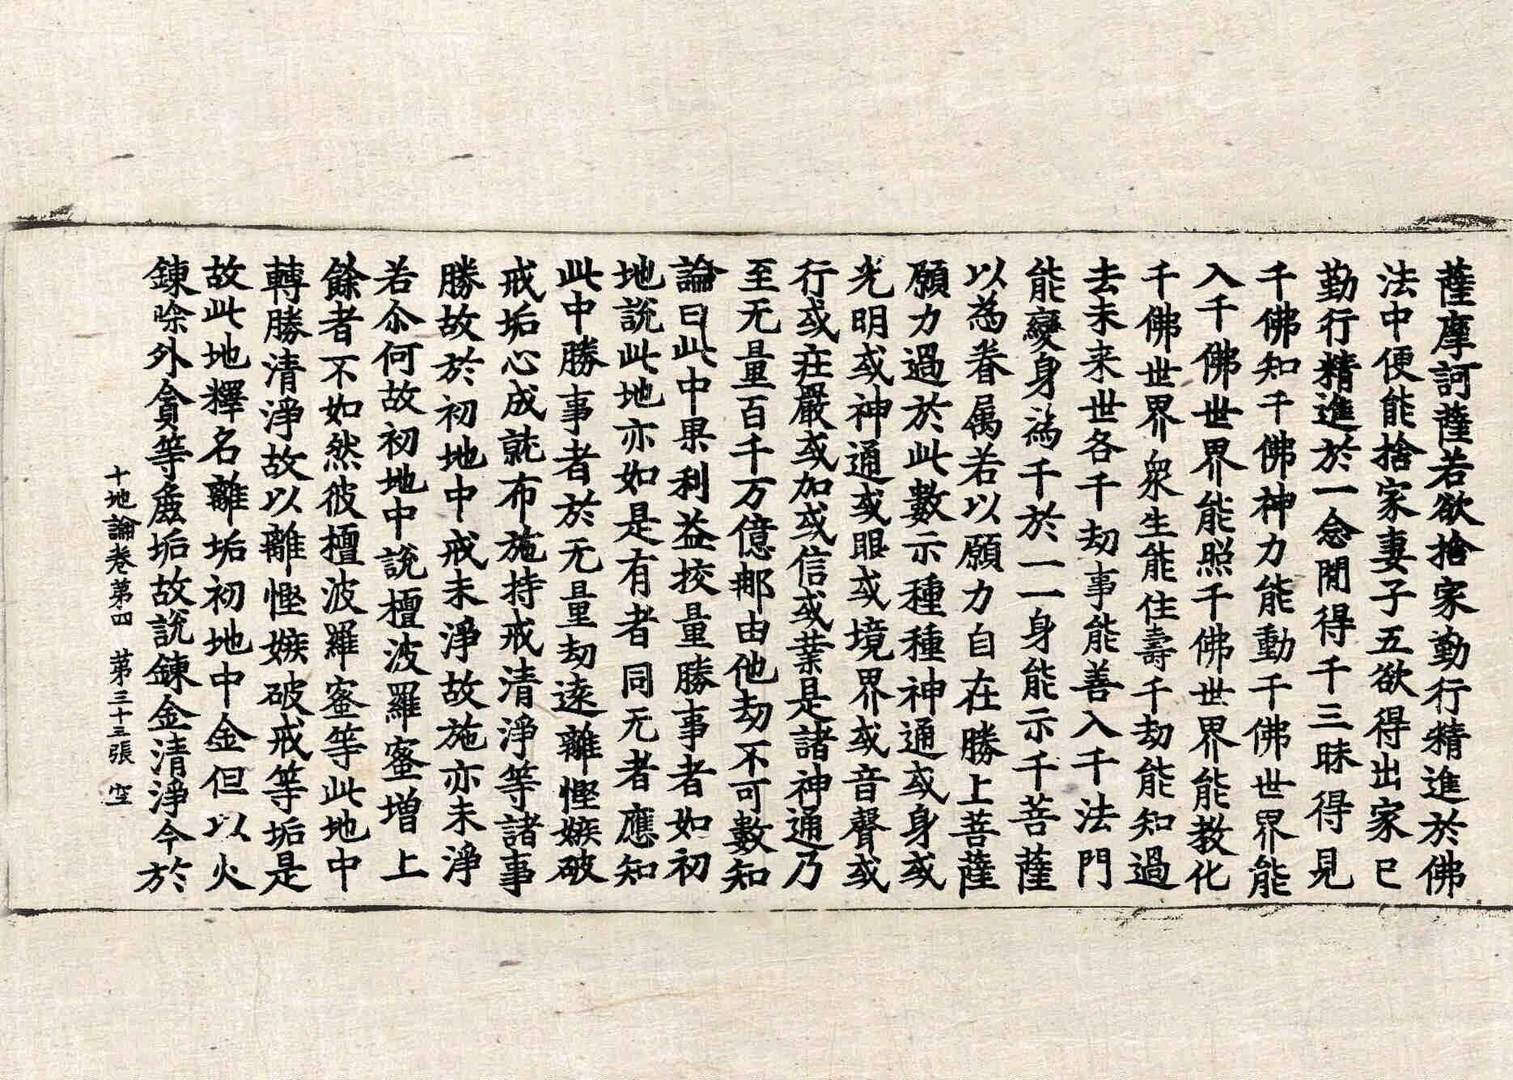 薩摩訶薩若欲捨家勤行精進於佛
法中便能捨家妻子五欲得出家已
勤行精進於一念閒得千三昧得見
千佛知千佛神力能動千佛世界能
入千佛世界能照千佛世界能教化
千佛世界衆生能住壽千劫能知過
去未来世各千劫事能善入千法門
能變身為千於一一身能示千菩薩
以為眷属若以願力自在勝上菩薩
願力過於此數示種種神通或身或
光明或神通或眼或境界或音聲或
行或莊嚴或加或信或業是諸神通乃
至无量百千万億那由他劫不可數知
論曰此中果利益挍量勝事者如初
地說此地亦如是有者同无者應知
此中勝事者於无量劫遠離慳嫉破
戒垢心成就布施持戒清淨等諸事
勝故於初地中戒未淨故施亦未淨
若尒何故初地中說檀波羅蜜增上
餘者不如然彼檀波羅蜜等此地中
轉勝清淨故以離慳嫉破戒等垢是
故此地釋名離垢初地中金但以火
鍊除外貪等麁垢故說鍊金清淨今於
十地論卷第四　第三十三張　空